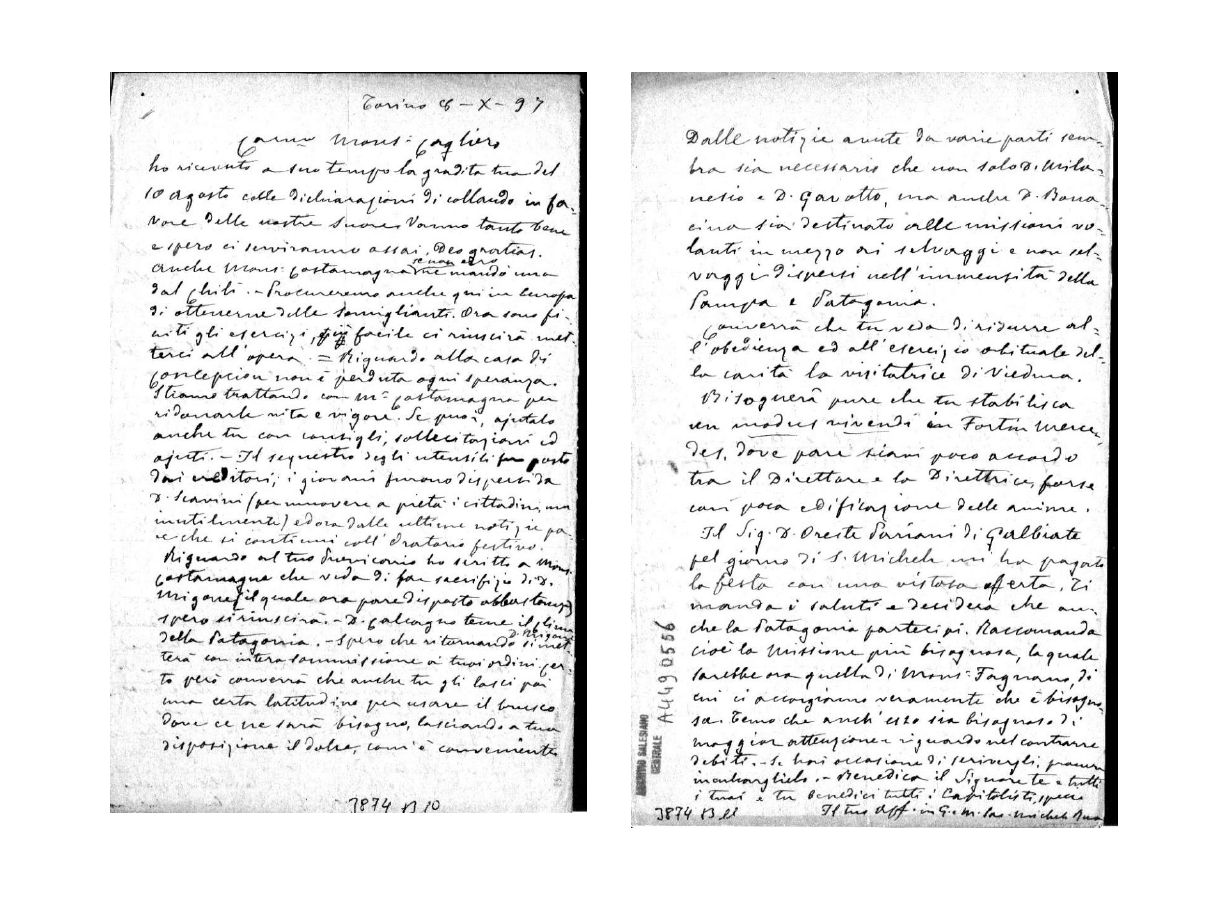 Torino 8 - X - 97
Car.mo Mons: Cagliero
ho ricevuto a suo tempo la gradita tua del
10 Agosto colle dichiarazioni di collaudo in fa-
vore delle nostre Suore. Vanno tanto bene
e spero ci serviranno assai. Deo gratias.
se non erro
Anche Mons: Costamagna ne mandò una
dal Chilì. - Procureremo anche qui in Europa
di ottenerne delle somiglianti. Ora sono fi-
niti gli esercizi, più facile ci riuscirà met-
terci all'opera. = Riguardo alla casa di
Concepcion non è perduta ogni speranza.
Stiamo trattando con M.r Costamagna per
ridonarle vita e vigore. Se puoi, ajutalo
anche tu con consigli, sollecitazioni ed
ajuti. - Il sequestro degli utensili fu posto
dai creditori; i giovani furono dispersi da
D. Scavini (per muovere a pietà i cittadini, ma
inutilmente) ed ora dalle ultime notizie pa-
re che si continui coll'Oratorio festivo.
Riguardo al tuo Provicario ho scritto a Mons.
Costamagna che veda di far sacrifizio di D.
Migone, il quale ora pare disposto abbastanza
spero si riuscirà. - D. Galcagno teme il clima
della Patagonia. - Spero che ritornando D. Migone si met-
terà con intera sommissione ai tuoi ordini, cer-
to però converrà che anche tu gli lasci poi
una certa latitudine per usare il brusco
dove ce ne sarà bisogno, lasciando a tua
disposizione il dolce, com'è conveniente
3874 B 10
Dalle notizie avute da varie parti sem-
bra sia necessario che non solo D. Mila-
nesio e D. Gavotto, ma anche D. Bona-
cina sia destinato alle missioni vo-
lanti in mezzo ai selvaggi e non sel-
vaggi dispersi nell'immensità della
Pampa e Patagonia.
Converrà che tu veda di ridurre al-
l'obedienza ed all'esercizio abituale del-
la carità la visitatrice di Viedma.
Bisognerà pure che tu stabilisca
un modus vivendi in Fortin Merce-
des, dove pare siavi poco accordo
tra il Direttore e la Direttrice, forse
con poca edificazione delle anime.
Il Sig. D. Oreste Pariani di Galbiate
pel giorno di S. Michele mi ha pagato
la festa con una vistosa offerta. Ti
manda i saluti e desidera che an-
che la Patagonia partecipi. Raccomanda
cioè la Missione più bisognosa, la quale
sarebbe ora quella di Mons: Fagnano, di
cui ci accorgiamo veramente che è bisogno-
sa. Temo che anch'esso sia bisognoso di
maggior attenzione e riguardo nel contrarre
debiti. - Se hai occasione di scrivergli, procura
inculcarglielo. - Benedica il Signore te e tutti
i tuoi e tu benedici tutti i Capitolisti, specie
Il tuo Aff. in G. e M. Sac. Michele Rua
3874 B 11
A4490556
ARCHIVIO SALESIANO
CENTRALE